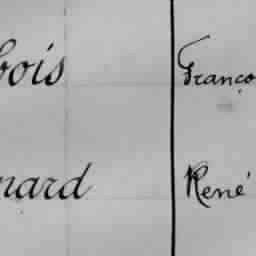 bois Franço
nard René